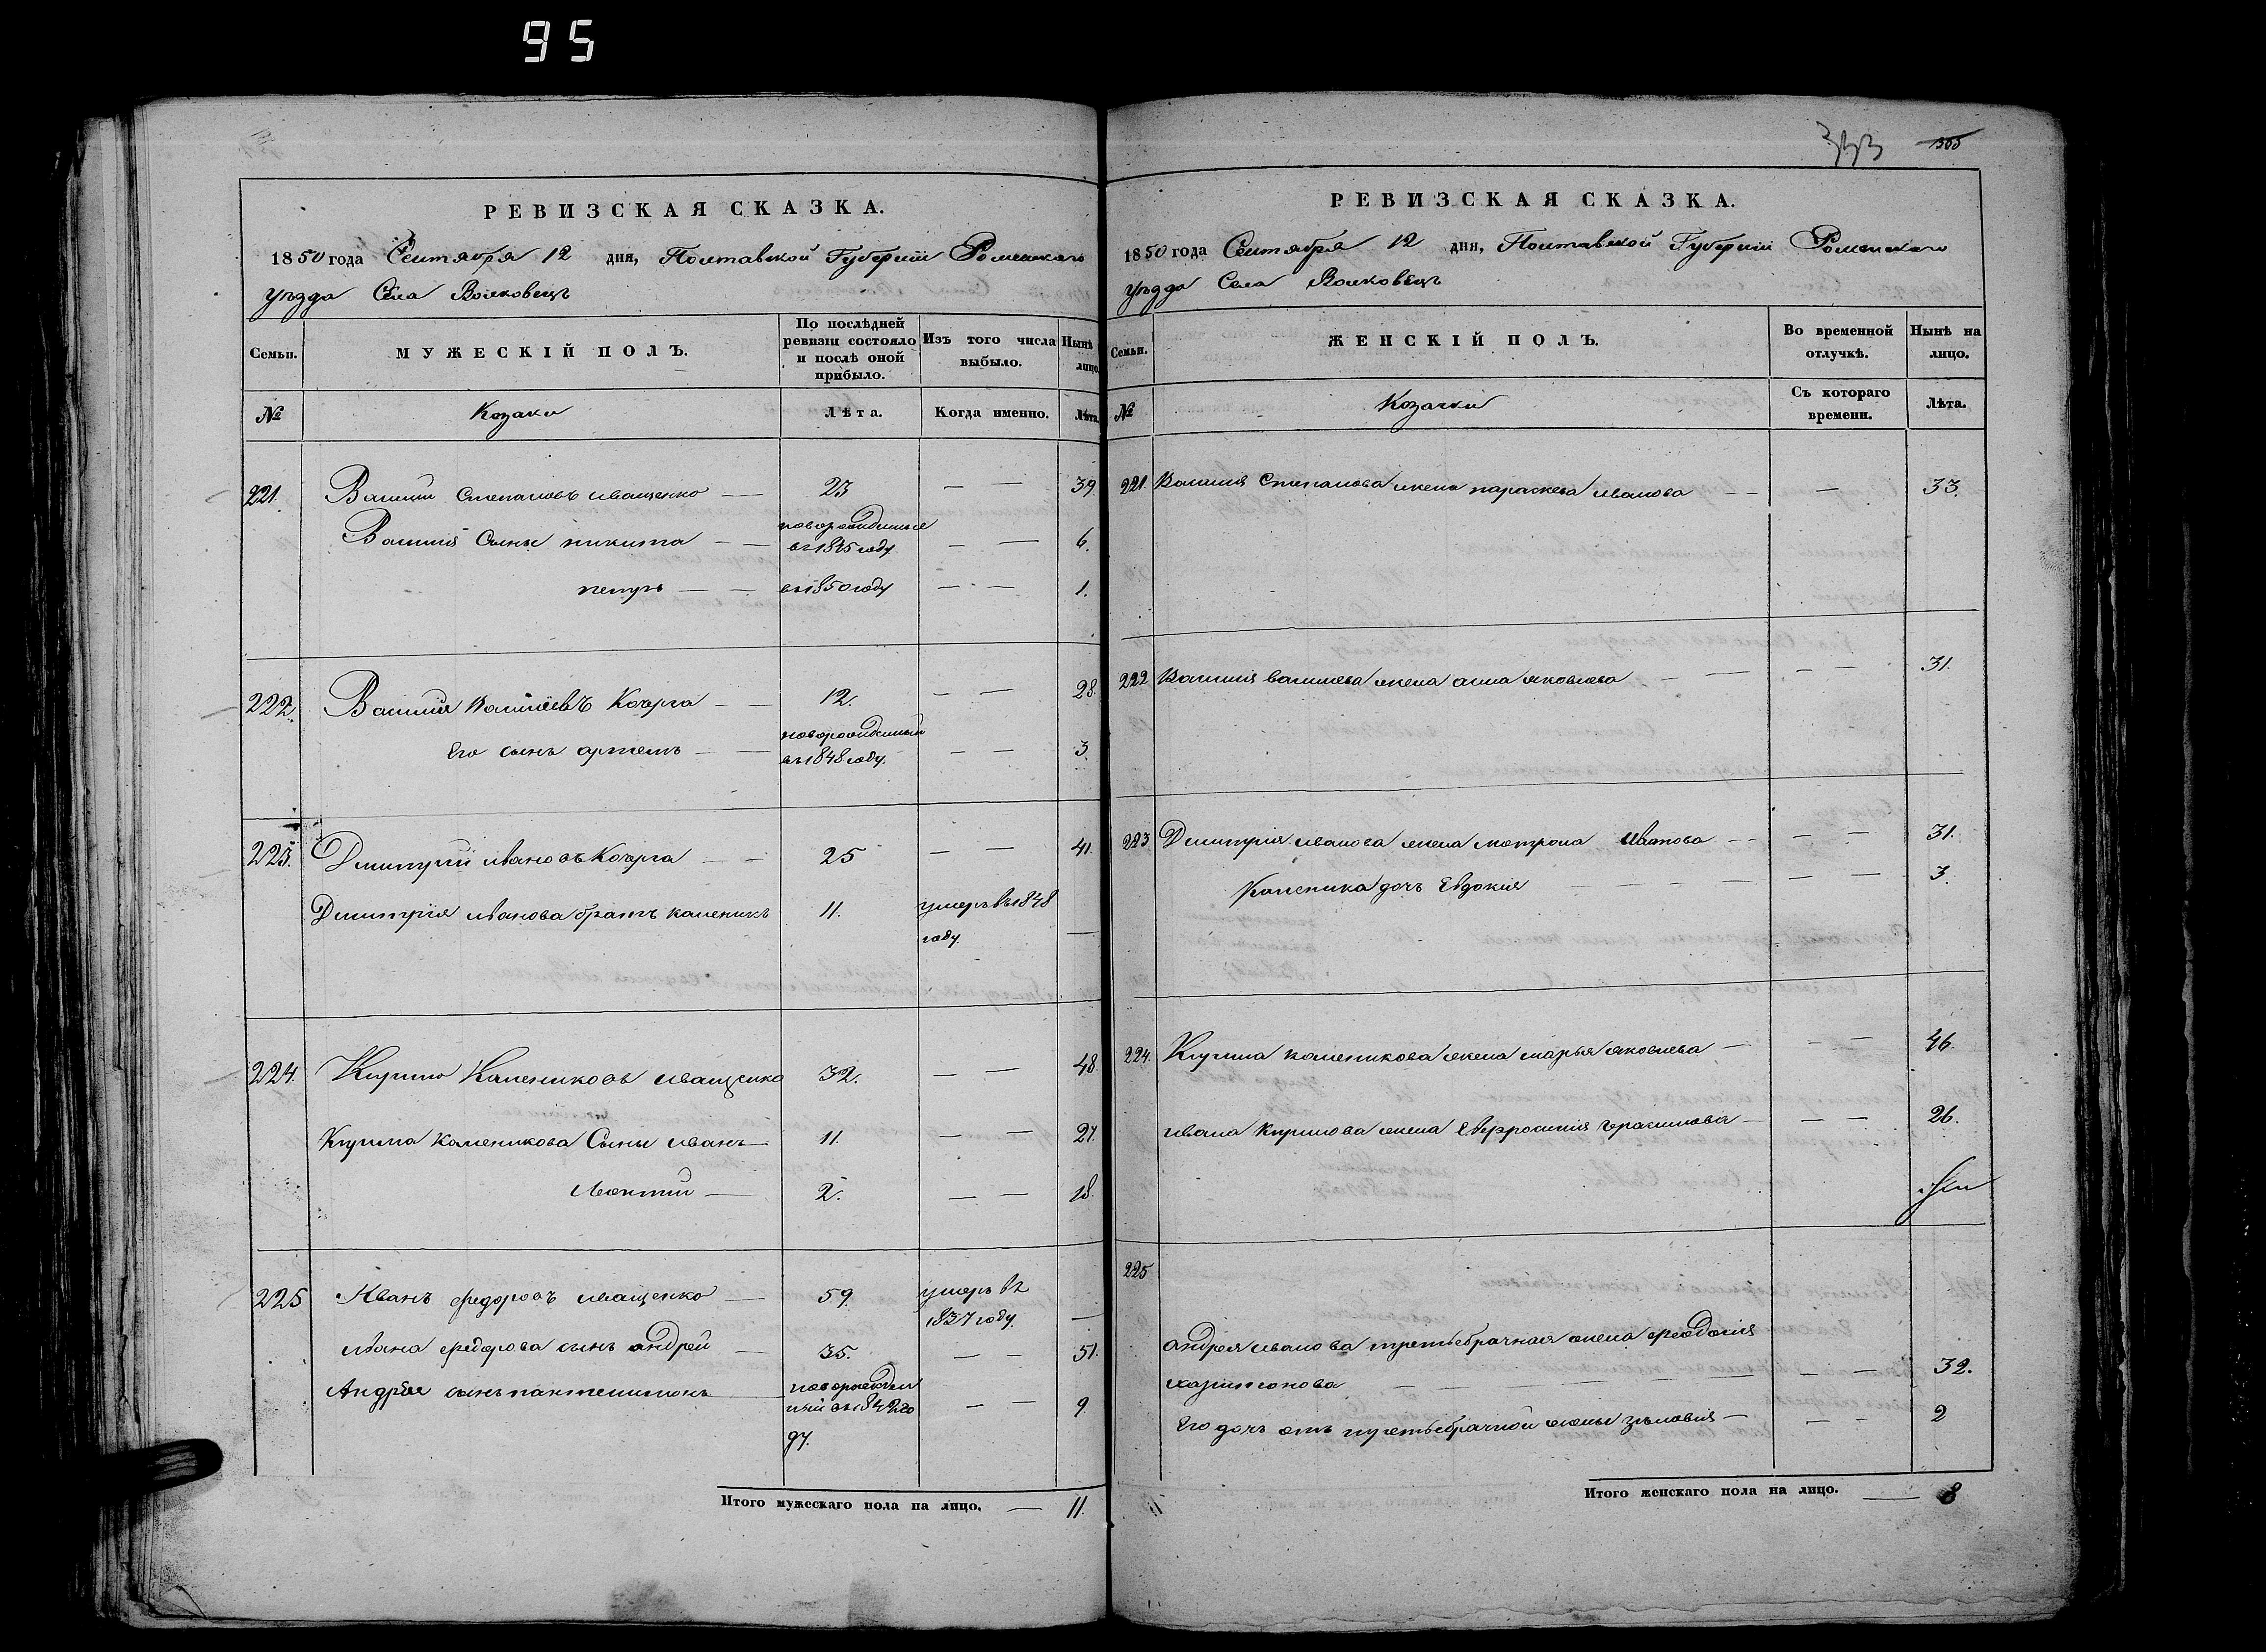 95
РЕВИЗСКАЯ СКАЗКА.
1850 года Сентября 12 дня, Полтавской Губернiи Роменскаго
уѣзда Села Волковецъ
Семьи.
МУЖЕСКIЙ ПОЛЪ.
По послѣдней ревизiи состояло и послѣ оной прибыло.
Изъ того числа выбыло.
Нынѣ лицо.
№ Козаки Лѣта. Когда именно. Лѣта.
221. Василий Степановъ иващенко — 23 — — 39.
Василия Сыны никита — — новорожденные въ 1845 году — — 6.
петръ — — въ 1850 году — — 1.
222. Василий Васильевъ Кочрга — — 12. — — 28.
Его сынъ артемъ — — новорожденный въ 1848 году. — — 3.
223. Дмитрий ивановъ Кочрга — — 25 — — 41.
Дмитрия иванова братъ каленикъ 11. умеръ въ 1848 году. —
224. Кирило Калениковъ иващенко 32. — — 48.
Кирила каленикова Сыны иванъ 11. — — 27.
Леонтий — 2. — — 18.
225 Иванъ федоровъ иващенко — 59. умеръ въ 1837 году. —
ивана федорова сынъ андрей — 35. — — 51.
Андрея сынъ пантелимонъ новорожденный въ 1842 году. — — 9.
Итого мужескаго пола на лицо. — 11.
333
РЕВИЗСКАЯ СКАЗКА.
1850 года Сентября 12 дня, Полтавской Губернiи Роменскаго
уѣзда Села Волковецъ
Семьи.
ЖЕНСКIЙ ПОЛЪ.
Во временной отлучкѣ.
Нынѣ на лицо.
№ Козачки Съ котораго времени. Лѣта.
221. Василия Степанова жена параскева иванова — — — 33.
222 Василия васильева жена анна яковлева — — — — 31.
223 Дмитрия иванова жена мотрона иванова — — — — 31.
Каленика дочь Евдокия — — — — — — 3.
224. Кирила каленикова жена марья яковлева — — — 46.
ивана кирилова жена Евфросиния герасимова — — — 26.
225
андрея иванова третьебрачная жена феодосия
харитонова — — — — — — 32.
Его дочь отъ третьебрачной жены зѣновия — — — 2
Итого женскаго пола на лицо. — 8